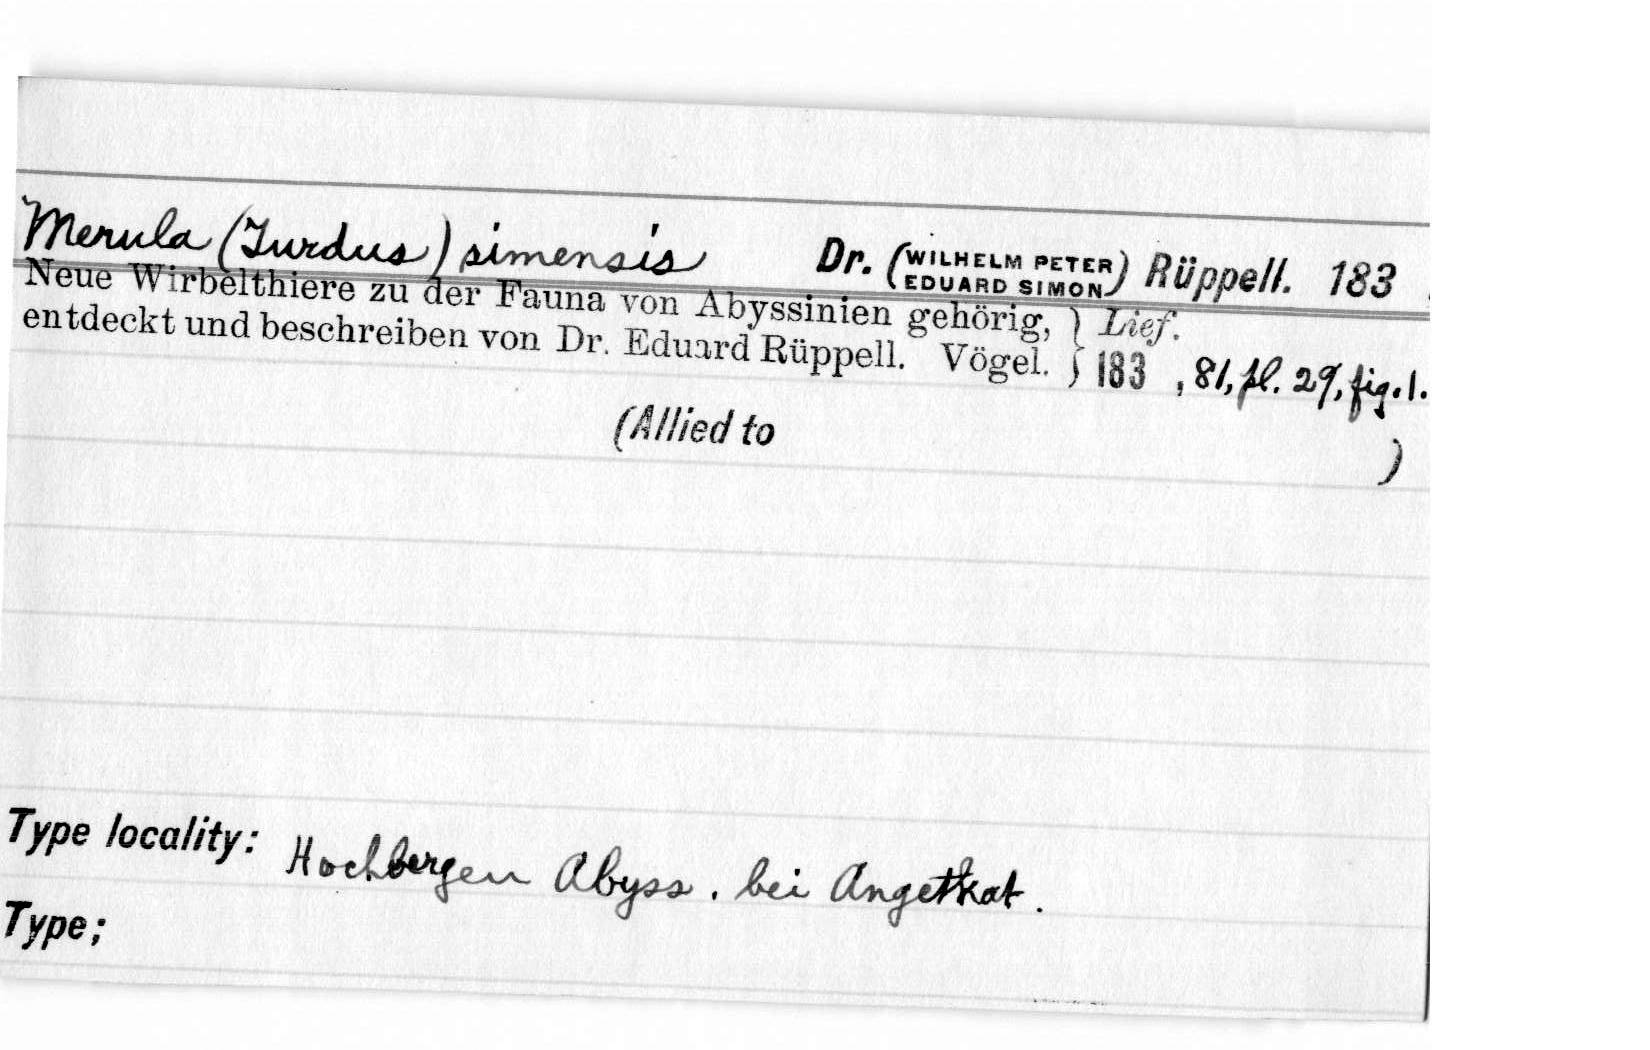 Merula (Turdus) simensis Dr. (WILHELM PETER EDUARD SIMON) Rüppell. 183
Neue Wirbelthiere zu der Fauna von Abyssinien gehörig, } Lief.
entdeckt und beschreiben von Dr. Eduard Rüppell. Vögel. } 183 , 81, pl. 29, fig. 1.
(Allied to )
Type locality: Hochbergen Abyss. bei Angetkat.
Type;